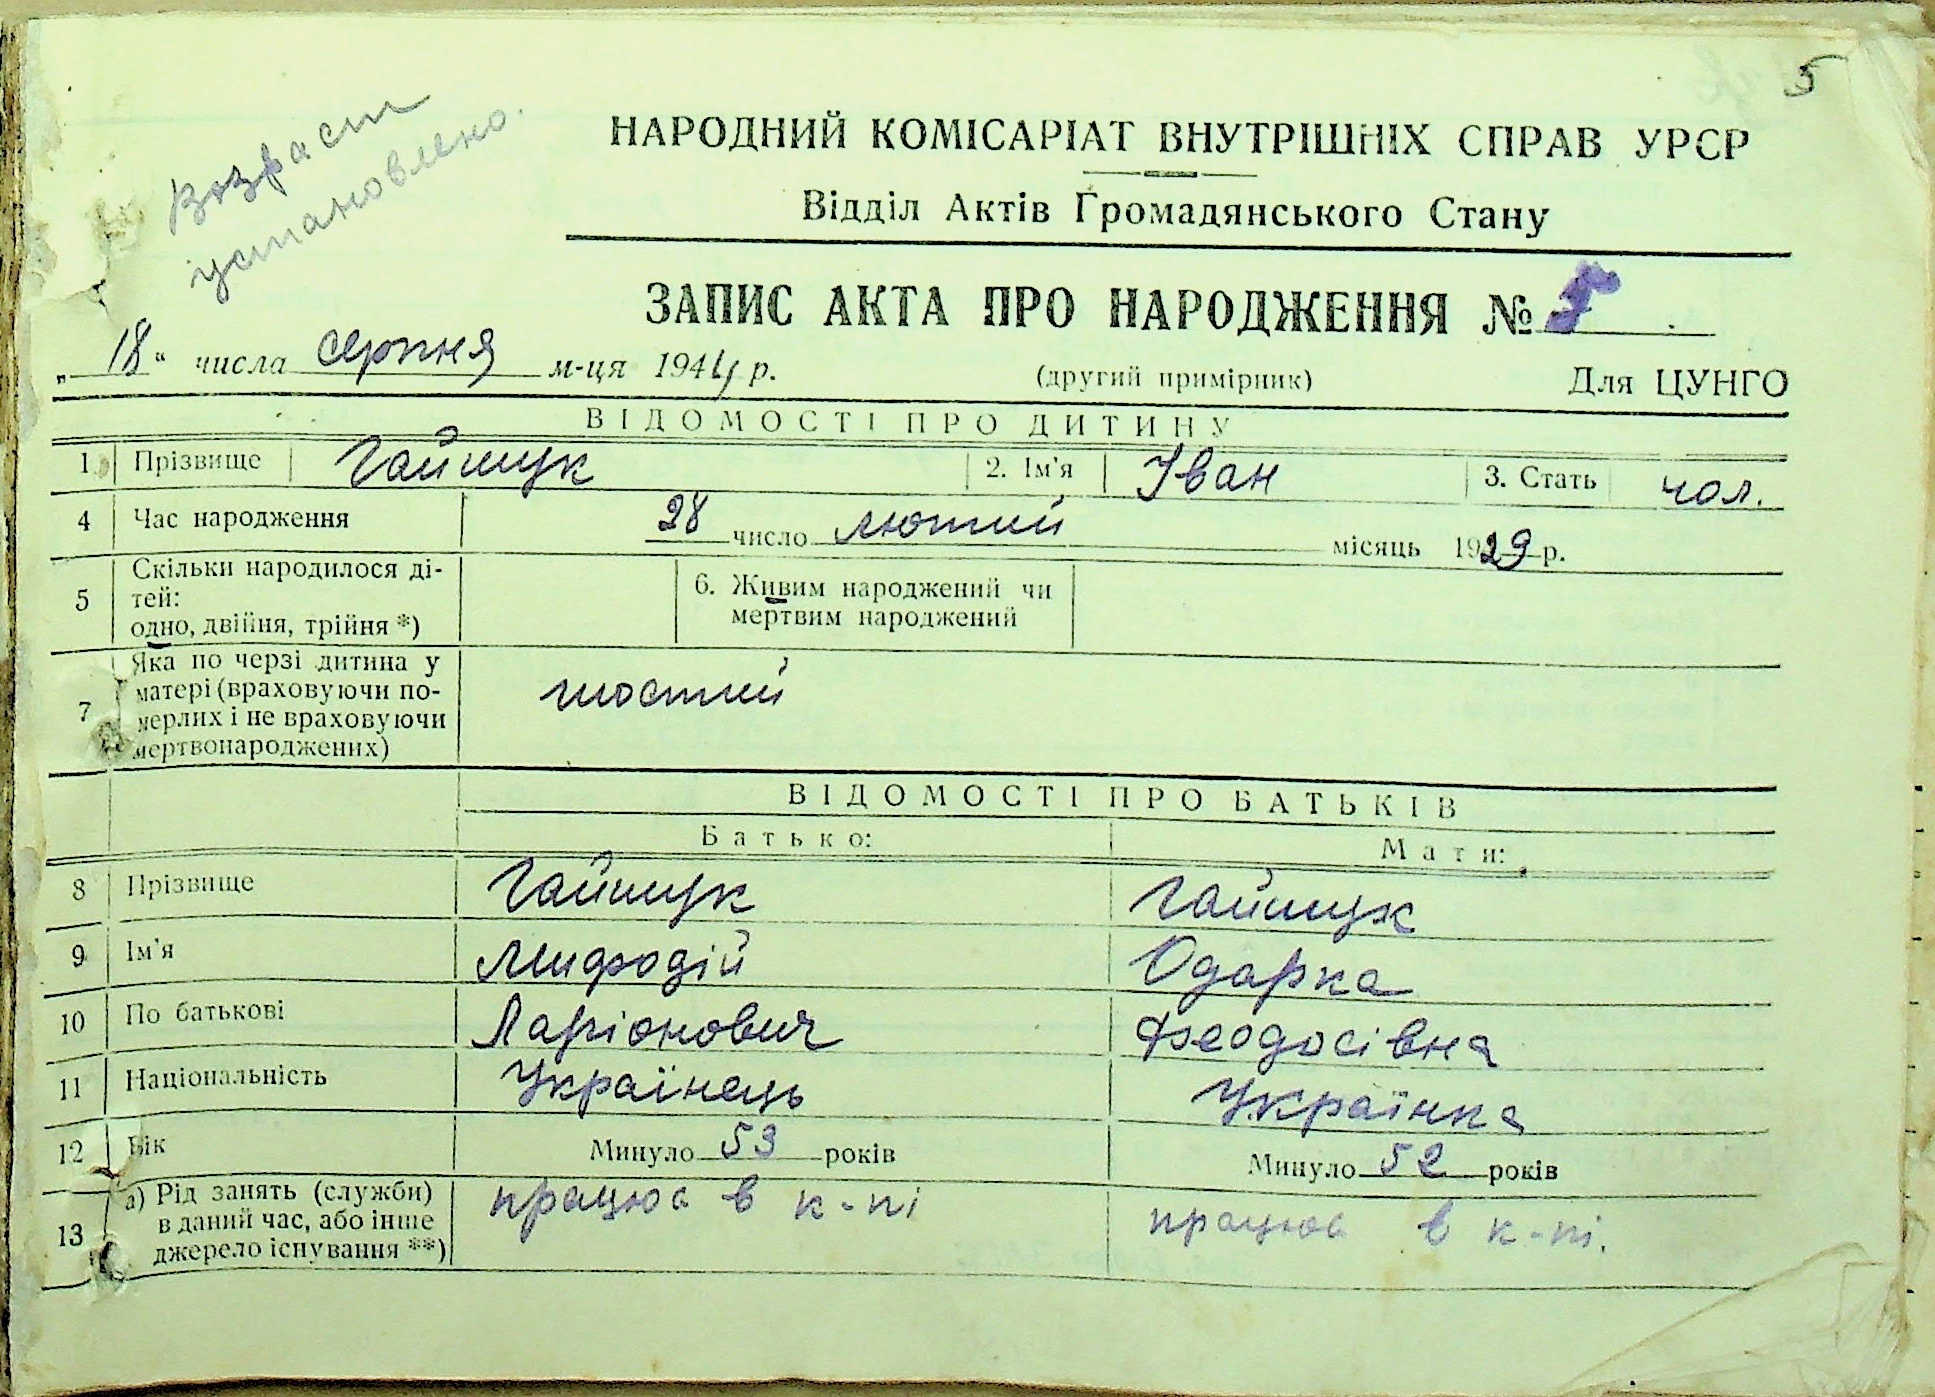 5
Возраст
установлено.
НАРОДНИЙ КОМІСАРІАТ ВНУТРІШНІХ СПРАВ УРСР
Відділ Актів Громадянського Стану
ЗАПИС АКТА ПРО НАРОДЖЕННЯ №
„ 18 “ числа серпня м-ця 1944 р. (другий примірник) Для ЦУНГО
ВІДОМОСТІ ПРО ДИТИНУ
1. Прізвище Гайшук 2. Ім'я Іван 3. Стать чол.
4 Час народження 28 число лютий місяць 1929 р.
5 Скільки народилося ді-
тей:
одно, двійня, трійня *)
6. Живим народжений чи
мертвим народжений
7 Яка по черзі дитина у
матері (враховуючи по-
мерлих і не враховуючи
мертвонароджених)
шостий
ВІДОМОСТІ ПРО БАТЬКІВ
Батько: Мати:
8 Прізвище Гайшук Гайшук
9 Ім'я Мифодій Одарка
10 По батькові Ларіонович Феодосівна
11 Національність Українець Українка
12 Вік Минуло 53 років Минуло 52 років
13 а) Рід занять (служби)
в даний час, або інше
джерело існування **)
працює в к-пі працює в к-пі.